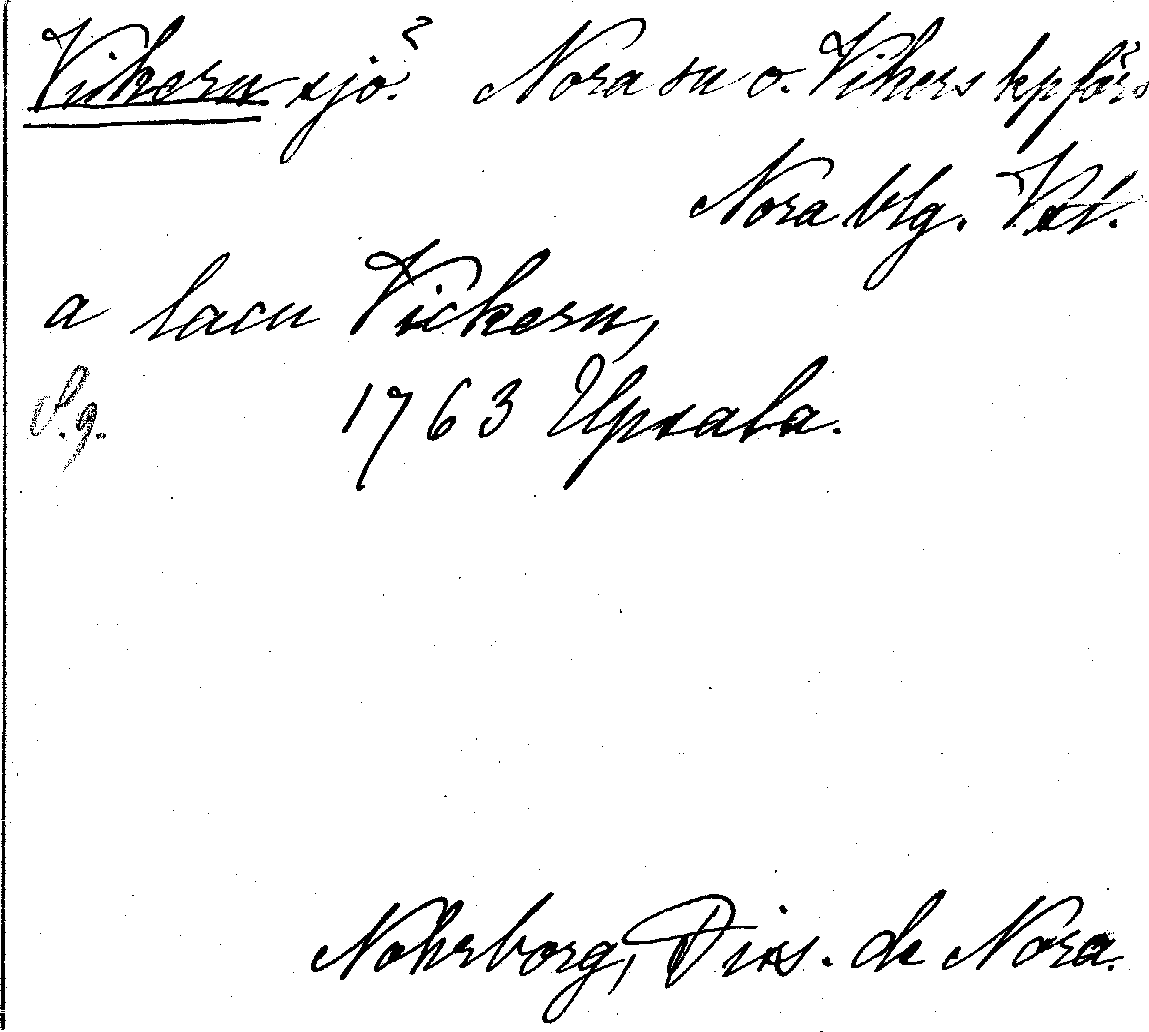 Vikern sjö. Nora sn o. Vikers kpförs
Nora blg. Vstl.
a lacu Vickern,
S.g. 1763 Upsala.
Nohrborg, Diss. de Nora.